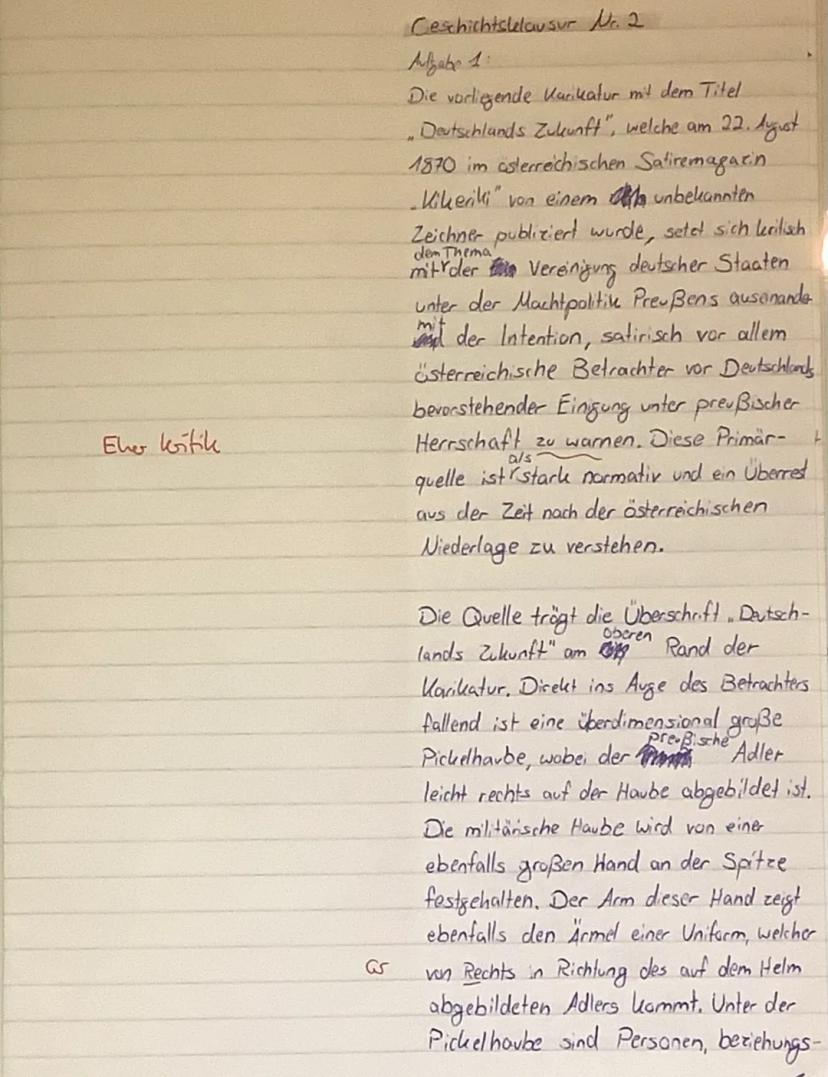 Geschichtsklausur Nr. 2
Aufgabe 1:
Die vorliegende Karikatur mit dem Titel
„Deutschlands Zukunft", welche am 22. August
1870 im österreichischen Satiremagazin
„Kikeriki" von einem unbekannten
Zeichner publiziert wurde, setzt sich kritisch
dem Thema
mit der Vereinigung deutscher Staaten
unter der Machtpolitik Preußens ausenander
mit
der Intention, satirisch vor allem
österreichische Betrachter vor Deutschlands
bevorstehender Einigung unter preußischer
Eher Kritik Herrschaft zu warnen. Diese Primär-
als
quelle ist stark normativ und ein Überrest
aus der Zeit nach der österreichischen
Niederlage zu verstehen.
Die Quelle trägt die Überschrift „Deutsch-
oberen
lands Zukunft" am Rand der
Karikatur. Direkt ins Auge des Betrachters
fallend ist eine überdimensional große
preußische
Pickelhaube, wobei der Adler
leicht rechts auf der Haube abgebildet ist.
Die militärische Haube wird von einer
ebenfalls großen Hand an der Spitze
festgehalten. Der Arm dieser Hand zeigt
ebenfalls den Ärmel einer Uniform, welcher
von Rechts in Richtung des auf dem Helm
abgebildeten Adlers kommt. Unter der
Pickelhaube sind Personen, beziehungs-